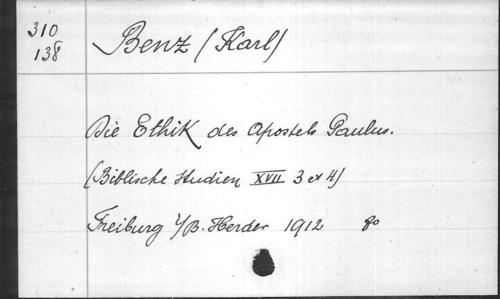 310
138
Benz (Karl)
Die Ethik des Apostels Paulus.
(Biblische Studien XVII 3 et 4)
Freiburg i/B. Herder 1912 8o